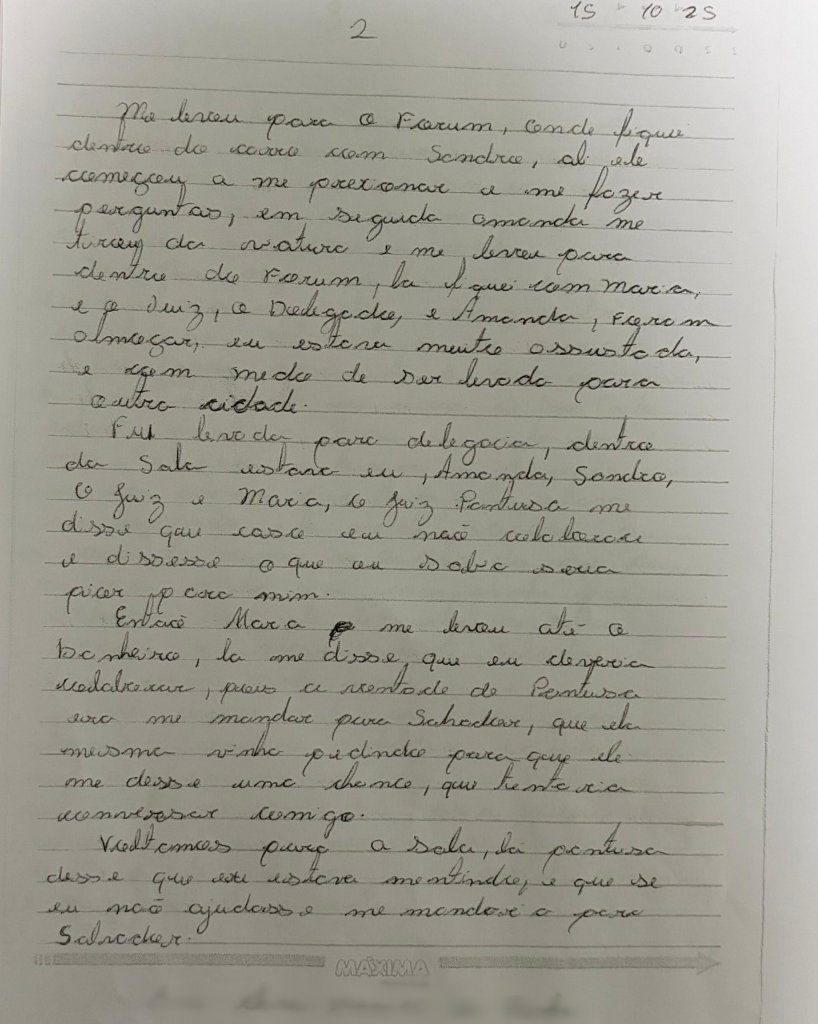 15 10 25
2
Me levou para o Forum, onde fiquei
dentro do carro com Sandro, ali ele
começou a me prexionar e me fazer
perguntas, em seguida amanda me
tirou da viatura e me levou para
dentro do Forum, la fiquei com Maria,
e o Juiz, o Delegado, e Amanda, Foram
almoçar, eu estava muito assustada,
e com medo de ser levada para
outra cidade.
Fui levada para delegacia, dentro
da Sala estava eu, Amanda, Sandro,
o Juiz e Maria, o Juiz Pantusa me
disse que caso eu não colaborace
e dissesse o que eu sabia seria
pior para mim.
Então Maria me levou até o
banheiro, la me disse, que eu deveria
colaborar, pois a vontade de Pantusa
era me mandar para Salvador, que ela
mesma vinha pedindo para que ele
me desse uma chance, que tentaria
conversar comigo.
Voltamos para a sala, lá pantusa
disse que eu estava mentindo, e que se
eu não ajudasse me mandaria para
Salvador.
MÁXIMA